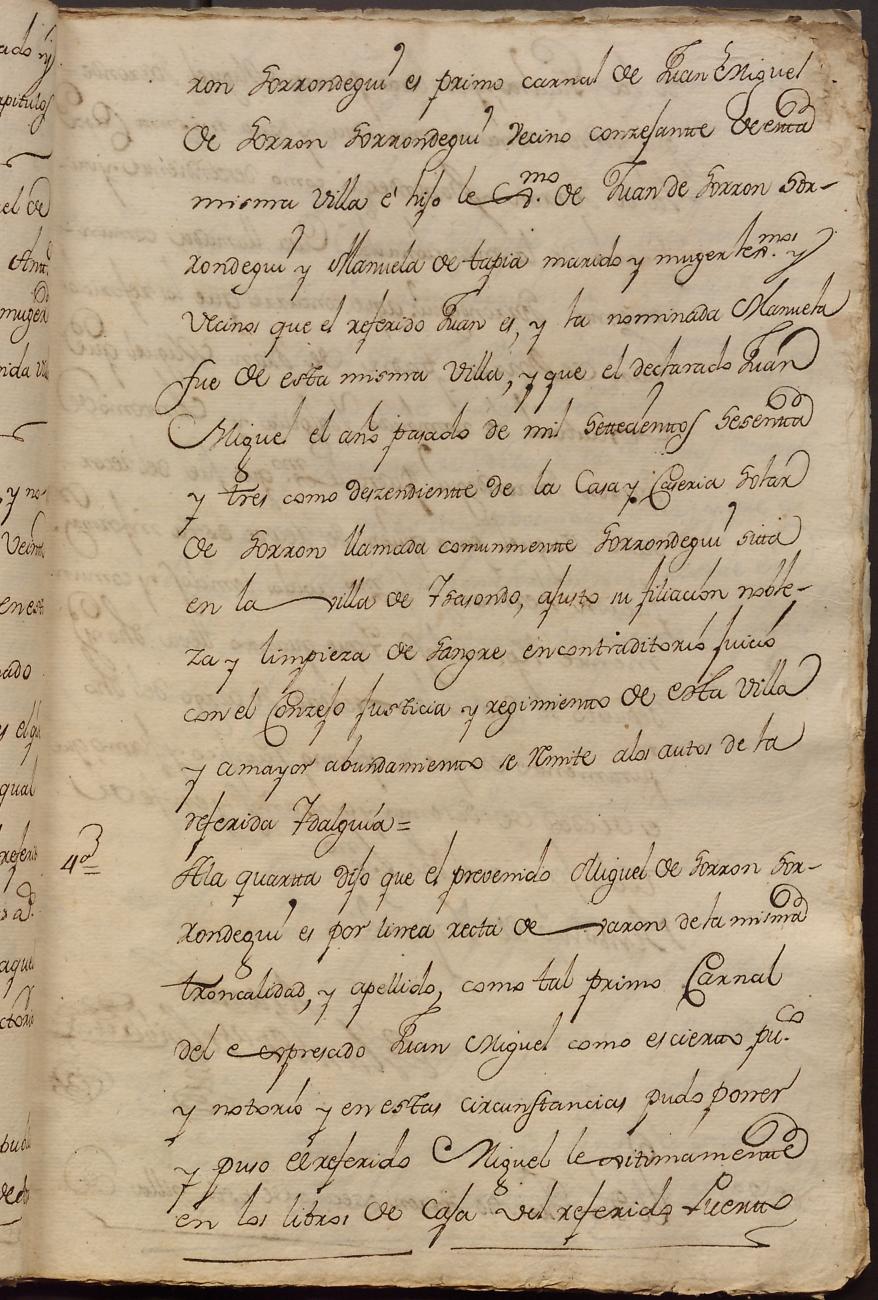 rron Sorrondegui es primo carnal de Juan Miguel
de Sorron Sorrondegui Vecino conzesante de esta
misma Villa e hijo lex.mo de Juan de Sorron Sor-
rondegui y Manuela de tapia marido y muger lex.mos y
Vecinos que el referido Juan es, y la nominada Manuela
fue de esta misma Villa, y que el declarado Juan
Miguel el año pasado de mil settecienttos sesentta
y tres como deszendientte de la Casa y Caseria solar
de Sorron llamada comunmentte Sorrondegui sitta
en la villa de Ybasondo, ajusto su filiacion noble-
za y limpieza de sangre en contraditorio juicio
con el Conzejo justicia y regimientto de esta Villa
y a mayor abundamientto se remite alos autos de la
referida Ydalguia =
4ª
Ala quartta dijo que el prevenido Miguel de Sorron Sor-
rondegui es por linea recta de varon de la misma
troncalidad, y apellido, como tal primo Carnal
del expresado Juan Miguel como es ciertto pu.co
y nottorio y en estas circunstancias pudo poner
y puso el referido Miguel lexitimamentte
en los libros de Casa del referido Puertto